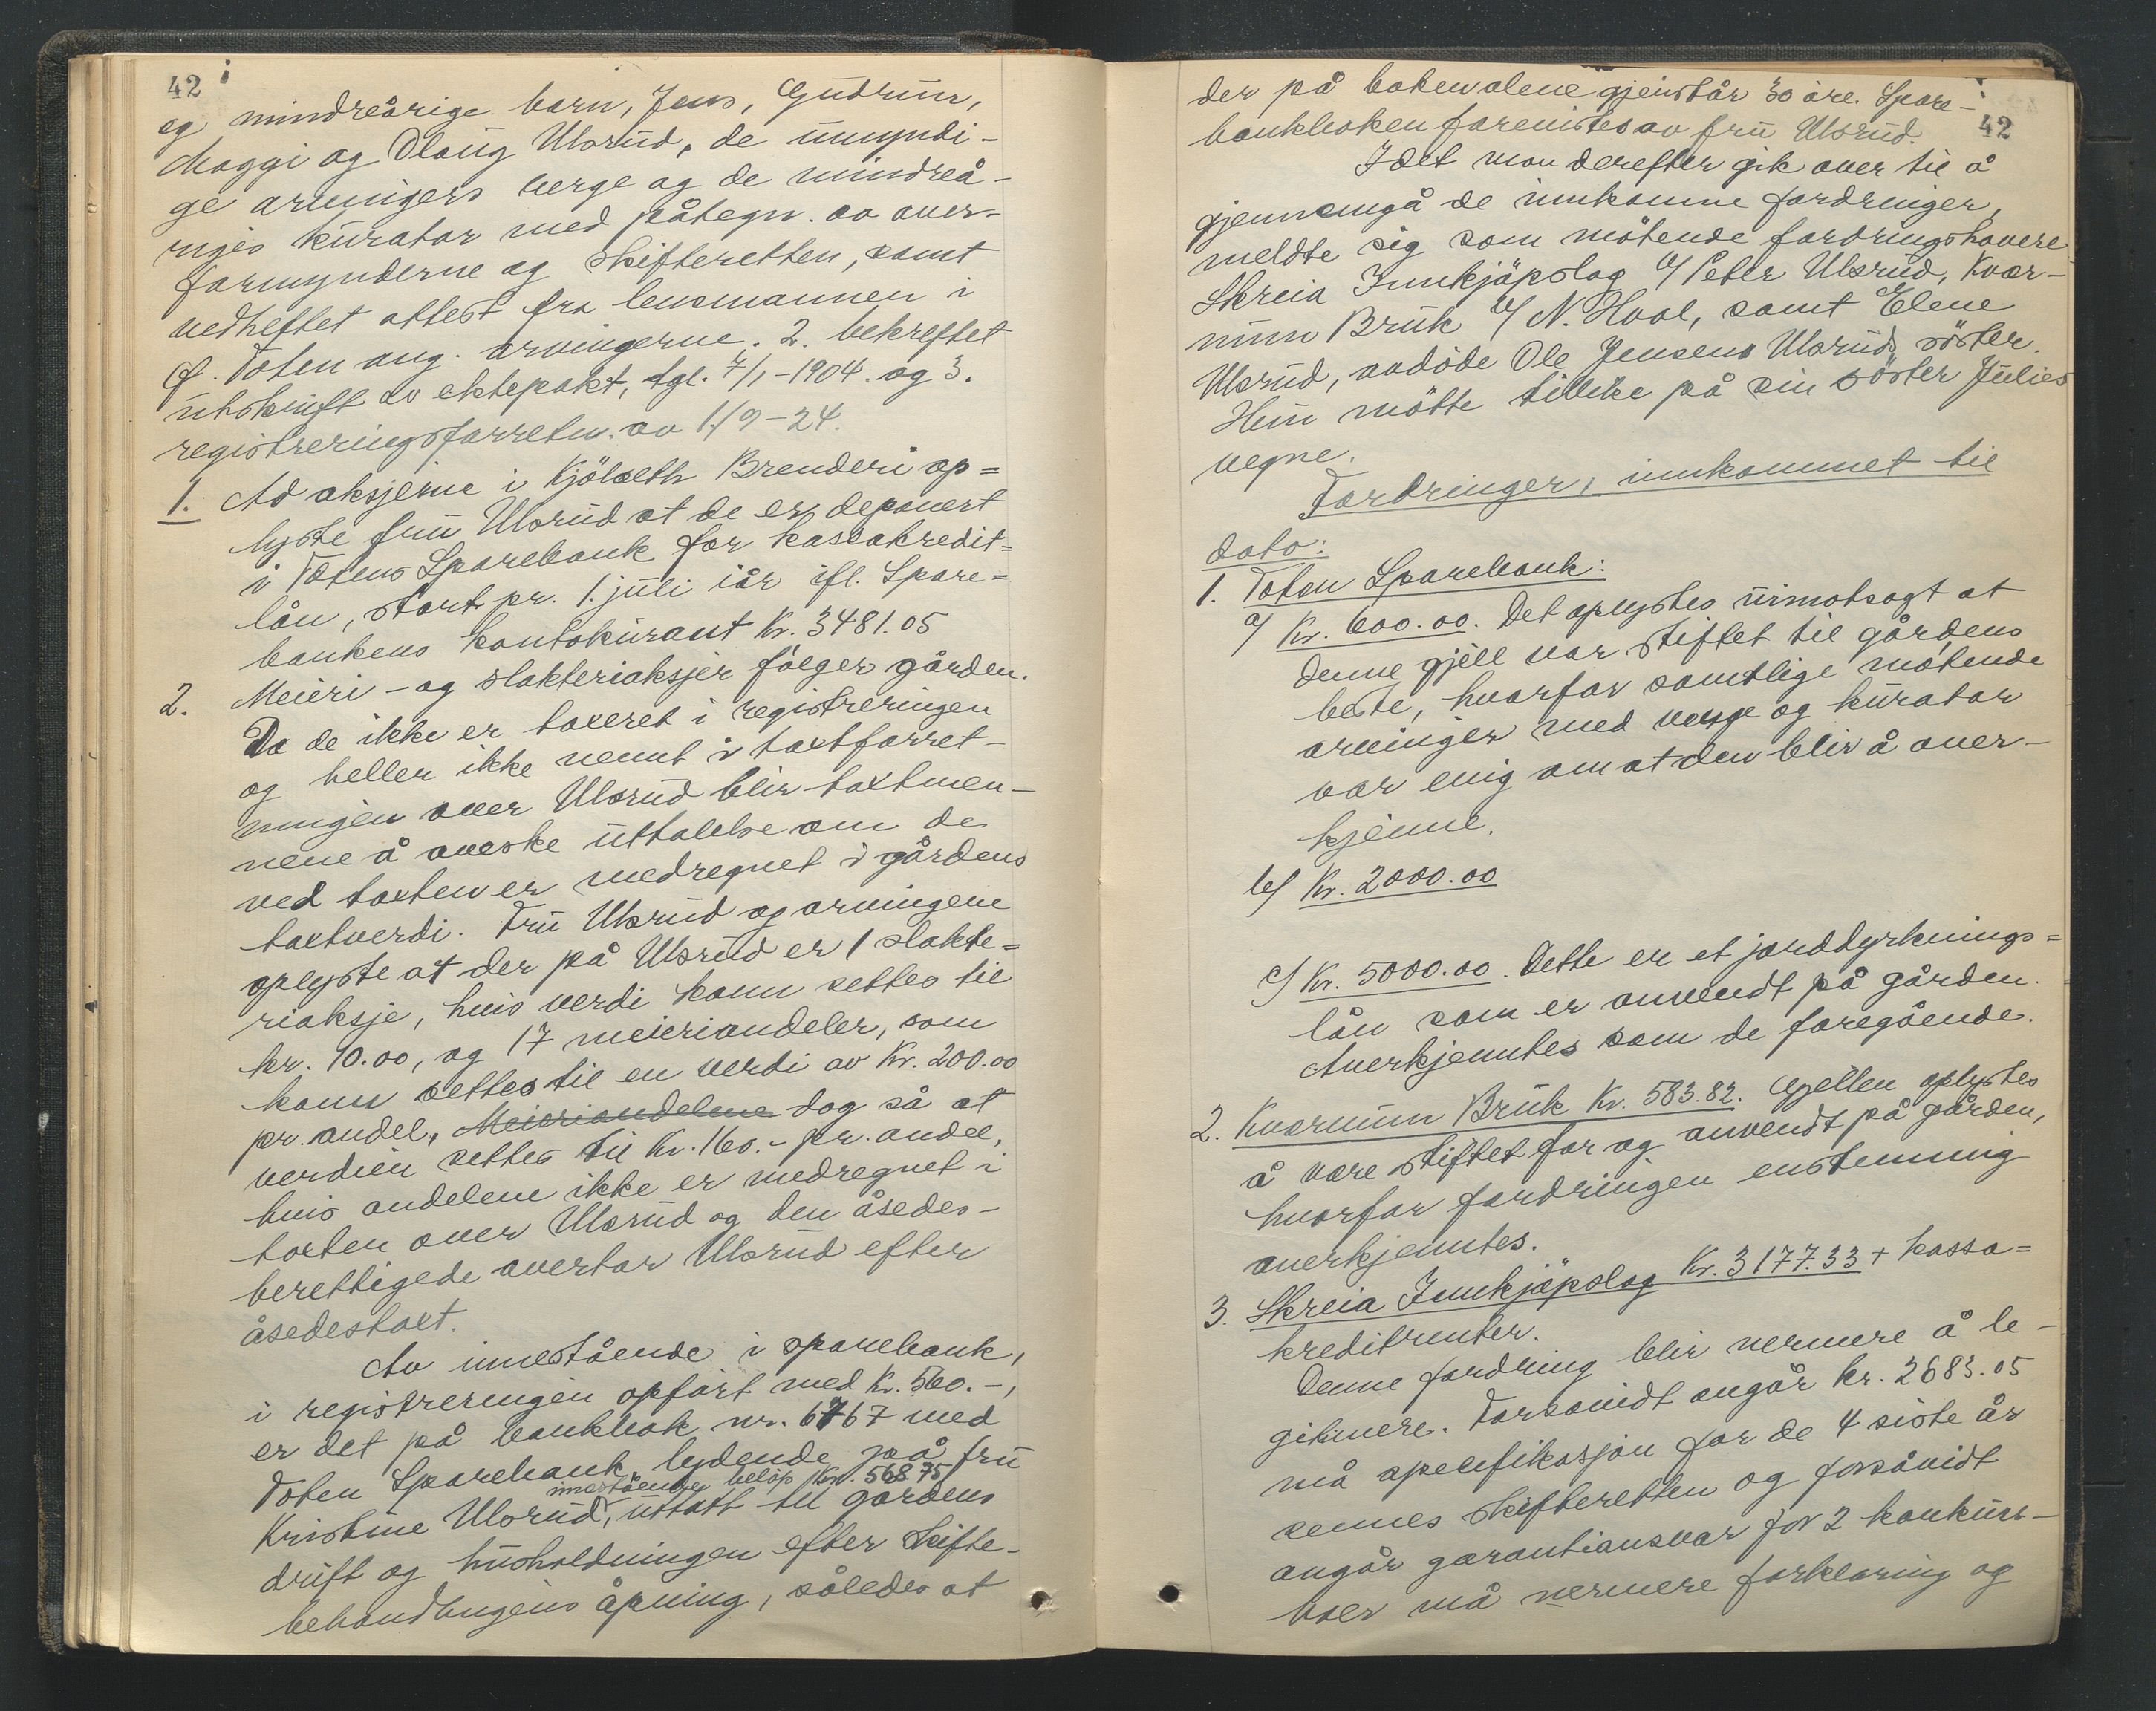 42
og mindreårige barn, Jens, Gudrun,
Maggi og Olaug Ulsrud, de umyndi-
ge arvingers verge og de mindreå-
riges kurator med påtegn. av over-
formynderne og skifteretten, samt
vedheftet attest fra lensmannen i
Ø. Toten ang. arvingerne. 2. bekreftet
utskrift av ektepakt, tgl. 7/1-1904. og 3.
registreringsforretn. av 1/9-24.
1. Ad aksjene i Kjölseth Brenderi op=
lyste fru Ulsrud at de er deponert
i Totens Sparebank for kassakredit=
lån, stort pr. 1. juli iår ifl. Spare=
bankens kontokurant Kr. 3481.05
2. Meieri- og slakteriaksjer fölger gården.
Da de ikke er taxeret i registreringen
og heller ikke nevnt i taxtforret-
ningen over Ulsrud blir taxtmen-
nene å aveske uttalelse om de
ved taxten er medregnet i gårdens
taxtverdi. Fru Ulsrud og arvingene
oplyste at der på Ulsrud er 1 slakte=
riaksje, hvis verdi kann settes til
kr. 10.00, og 17 meieriandeler, som
kann settes til en verdi av Kr. 200.00
pr. andel, Meieriandelene dog så at
verdien settes til Kr. 160.- pr. andel,
hvis andelene ikke er medregnet i
taxten over Ulsrud og den åsedes-
berettigede overtar Ulsrud efter
åsedestaxt.
Av innestående i sparebank,
i registreringen opfört med Kr. 560.-,
er det på bankbok nr. 6767 med
Toten Sparebank, lydende på fru
innestående belöp Kr. 568 75
Kristine Ulsrud, uttatt til gårdens
drift og husholdningen efter skifte-
behandlingens åpning, således at
der på boken alene gjenstår 30 öre. Spare-
42
bankboken forevistes av fru Ulsrud.
Idet man derefter gik over til å
gjennemgå de innkomne fordringer,
meldte sig som mötende fordringshavere
Skreia Innkjöpslag v/ Peter Ulsrud, Kvær-
num Bruk v/ N. Hval, samt Elene
Ulsrud, avdöde Ole Jensens Ulsruds söster.
Hun mötte tillike på sin söster Julies
vegne.
Fordringer, innkommet til
dato:
1. Toten Sparebank:
a/ Kr. 600.00. Det oplystes uimotsagt at
denne gjell var stiftet til gårdens
beste, hvorfor samtlige mötende
arvinger med verge og kurator
var enig om at den blir å aner-
kjenne.
b/ Kr. 2000.00
c/ Kr. 5000.00. Dette er et jorddyrknings=
lån som er anvendt på gården.
Anerkjenntes som de foregående.
2. Kvernum Bruk Kr. 583.82. Gjellen oplystes
å være stiftet for og anvendt på gården,
hvorfor fordringen enstemmig
anerkjenntes.
3. Skreia Innkjöpslag Kr. 3177.33 + kassa=
kreditrenter.
Denne fordring blir nermere å le-
gitimere. Forsåvidt angår kr. 2683.05
må specifikasjon for de 4 siste år
sennes skifteretten og forsåvidt
angår garantiansvar for 2 konkurs-
boer må nermere forklaring og